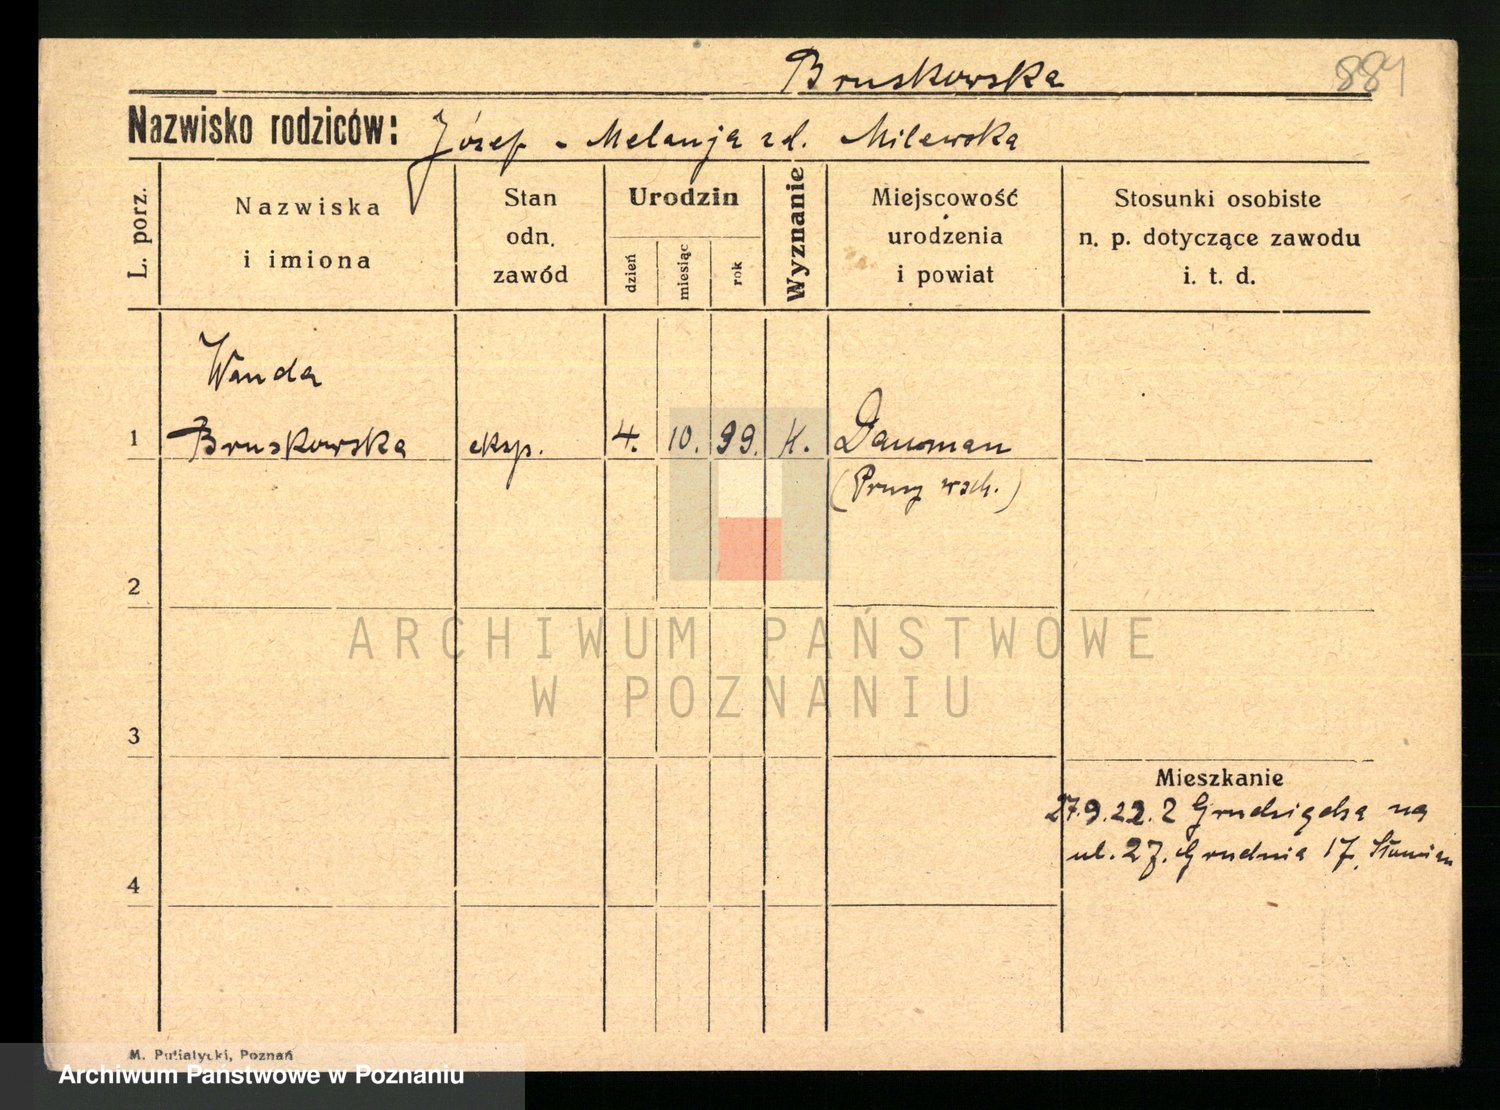 Bruskowska
884
Nazwisko rodziców: Józef - Melanja zd. Milewska
L. porz.
Nazwiska
i imiona
Stan
odn.
zawód
Urodzin
dzień
miesiąc
rok
Wyznanie
Miejscowość
urodzenia
i powiat
Stosunki osobiste
n. p. dotyczące zawodu
i. t. d.
Wanda
1 Bruskowska eksp. 4. 10. 99. k. Dausman
(Prusy wsch.)
2
ARCHIWUM PAŃSTWOWE
W POZNANIU
3
Mieszkanie
27.9.22. z Grudziądza na
ul. 27. Grudnia 17.
4
M. Putiatycki, Poznań
Archiwum Państwowe w Poznaniu